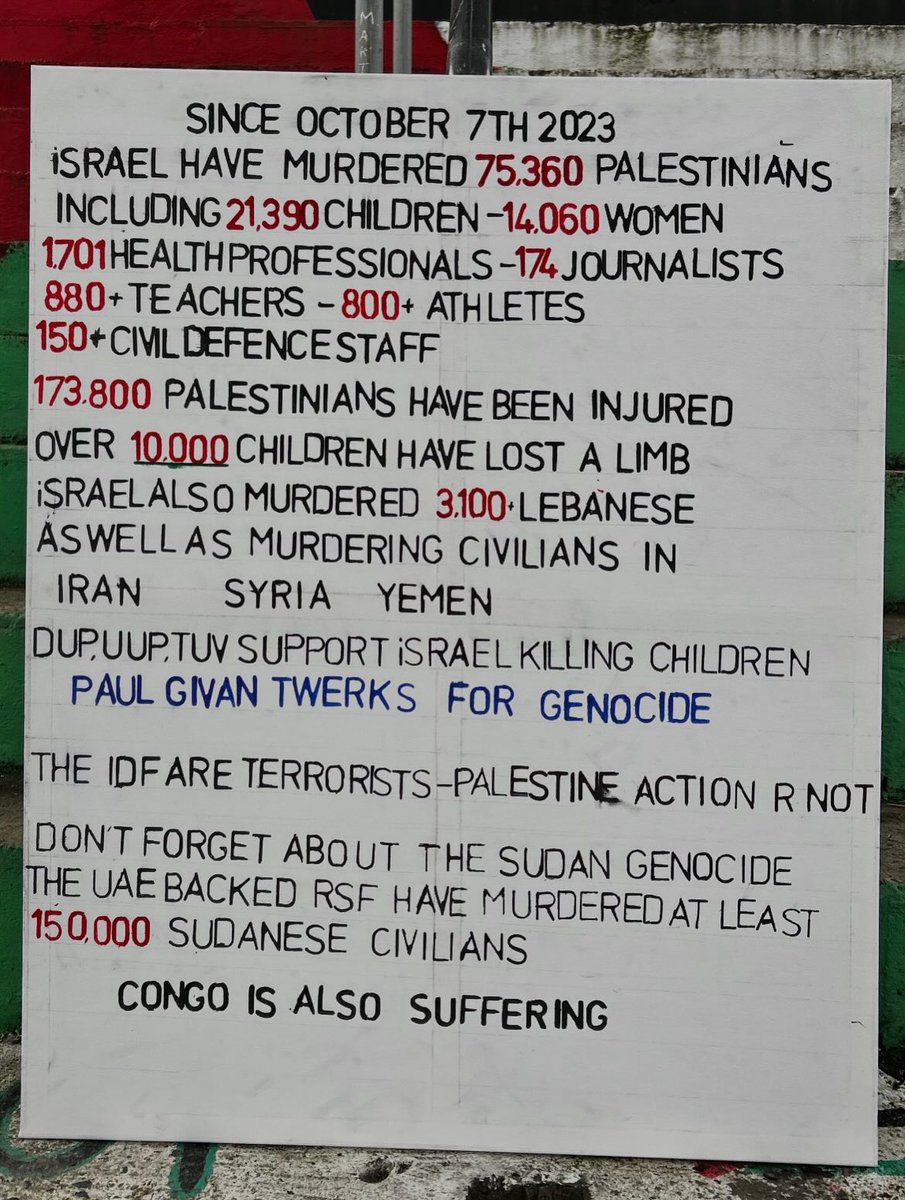 MART
SINCE OCTOBER 7TH 2023
iSRAEL HAVE MURDERED 75,360 PALESTINIANS
INCLUDING 21,390 CHILDREN - 14,060 WOMEN
1,701 HEALTH PROFESSIONALS - 174 JOURNALISTS
880+ TEACHERS - 800+ ATHLETES
150+ CIVIL DEFENCE STAFF
173,800 PALESTINIANS HAVE BEEN INJURED
OVER 10,000 CHILDREN HAVE LOST A LIMB
iSRAEL ALSO MURDERED 3,100+ LEBANESE
AS WELL AS MURDERING CIVILIANS IN
IRAN SYRIA YEMEN
DUP, UUP, TUV SUPPORT iSRAEL KILLING CHILDREN
PAUL GIVAN TWERKS FOR GENOCIDE
THE IDF ARE TERRORISTS - PALESTINE ACTION R NOT
DON'T FORGET ABOUT THE SUDAN GENOCIDE
THE UAE BACKED RSF HAVE MURDERED AT LEAST
150,000 SUDANESE CIVILIANS
CONGO IS ALSO SUFFERING